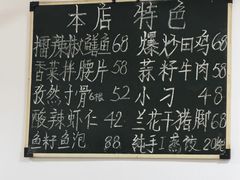 本店特色
擂辣椒鳝鱼 68 爆炒田鸡 68
香菜拌腰片 58 蒜籽牛肉 58
孜然寸骨6根 52 小刁 48
酸辣虾仁 42 兰花干猪脚 68
鱼籽鱼泡 88 纯手工蒸饺 20